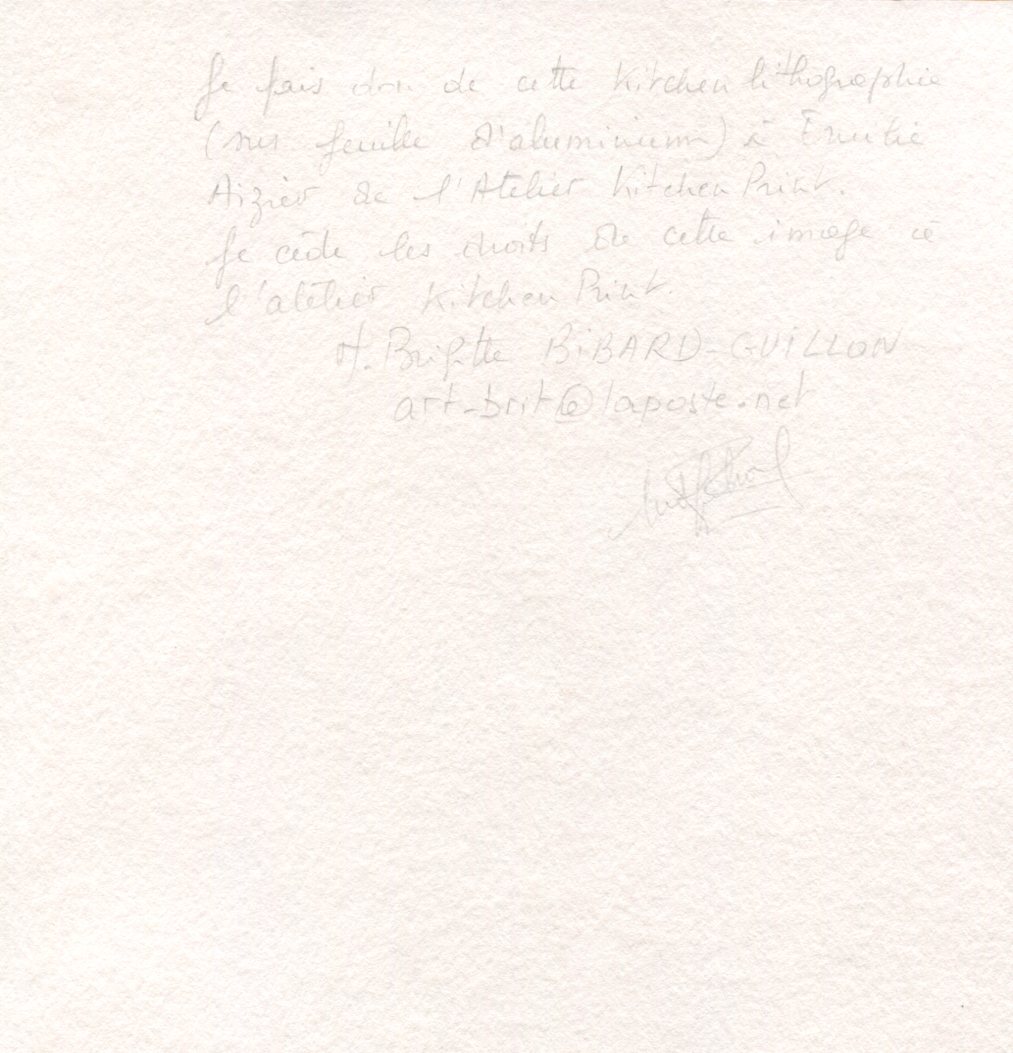 Je fais don de cette Kitchen lithographie
(sur feuille d'aluminium) à Émilie
Aizier de l'Atelier Kitchen Print.
Je cède les droits de cette image à
l'atelier Kitchen Print.
M. Brigitte BiBARD-GUiLLON
art-brit@laposte.net